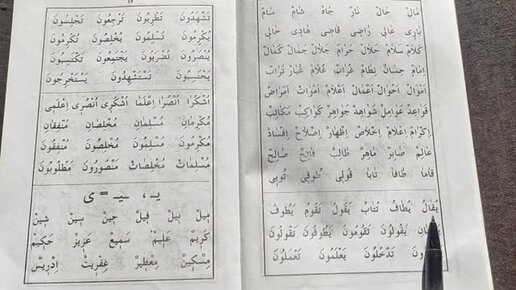 مَالٌ خَالٌ نَارٌ جَاهٌ شَامٌ سَامٌ
نَارِى عَالِى رَاضِى قَاضِى هَادِى خَالِى
كَلَامٌ سَلَامٌ حَلَالٌ حَرَامٌ جَلَالٌ جَمَالٌ كَمَالٌ
اِمَامٌ حِسَانٌ نِظَامٌ غُرَابٌ غُلَامٌ غُبَارٌ تُرَابٌ
اَمْوَالٌ اَحْوَالٌ اَعْمَالٌ اَعْلَامٌ اَمْوَاتٌ اَمْرَاضٌ
قَوَاعِدُ عَوَامِلُ شَوَاهِدُ جَوَاهِرُ كَوَاكِبُ مَكَاتِبُ
اِكْرَامٌ اِعْلَامٌ اِخْلَاصٌ اِظْهَارٌ اِصْلَاحٌ اِفْسَادٌ
عَالِمٌ صَابِرٌ مَاهِرٌ طَالِبٌ فَالِحٌ صَالِحٌ
قَامَا طَافَا تَابَا قُولِى طُوفِى تُوبِى
يُقَالُ يُطَافُ يُتَابُ يَقُولُ تَقُومُ يَطُوفُ
يَقُولُونَ تَقُومُونَ يَطُوفُونَ تَقُولُونَ
تَدْخُلُونَ يَعْلَمُونَ تَعْمَلُونَ
تَشْهَدُونَ تَضْرِبُونَ تَرْجِعُونَ تَجْلِسُونَ
يُكْرِمُونَ تُسْلِمُونَ يُخْلِصُونَ تُكْرِمُونَ
يَنْصُرُونَ تَضْرِبُونَ يَجْتَمِعُونَ تَكْتَسِبُونَ
يَحْتَسِبُونَ تَسْتَشْهِدُونَ يَسْتَخْرِجُونَ
اُشْكُرَا اُنْصُرَا اِعْلَمَا اُشْكُرِى اُنْصُرِى اِعْلَمِى
مُكْرِمَانِ مُسْلِمَانِ مُخْلِصَانِ مُتَّفِقَانِ
مُكْرِمُونَ مُسْلِمُونَ مُخْلِصُونَ مُتَّفِقُونَ
مُسْلِمَاتٌ مُخْلِصَاتٌ مَنْصُورُونَ مَطْلُوبُونَ
يـ، ـيـ = ى
مِيلٌ نِيلٌ فِيلٌ جِينٌ سِينٌ شِينٌ
كَرِيمٌ عَلِيمٌ سَمِيعٌ عَزِيزٌ حَكِيمٌ
مِسْكِينٌ مِعْطِيرٌ عِفْرِيتٌ اِدْرِيسُ